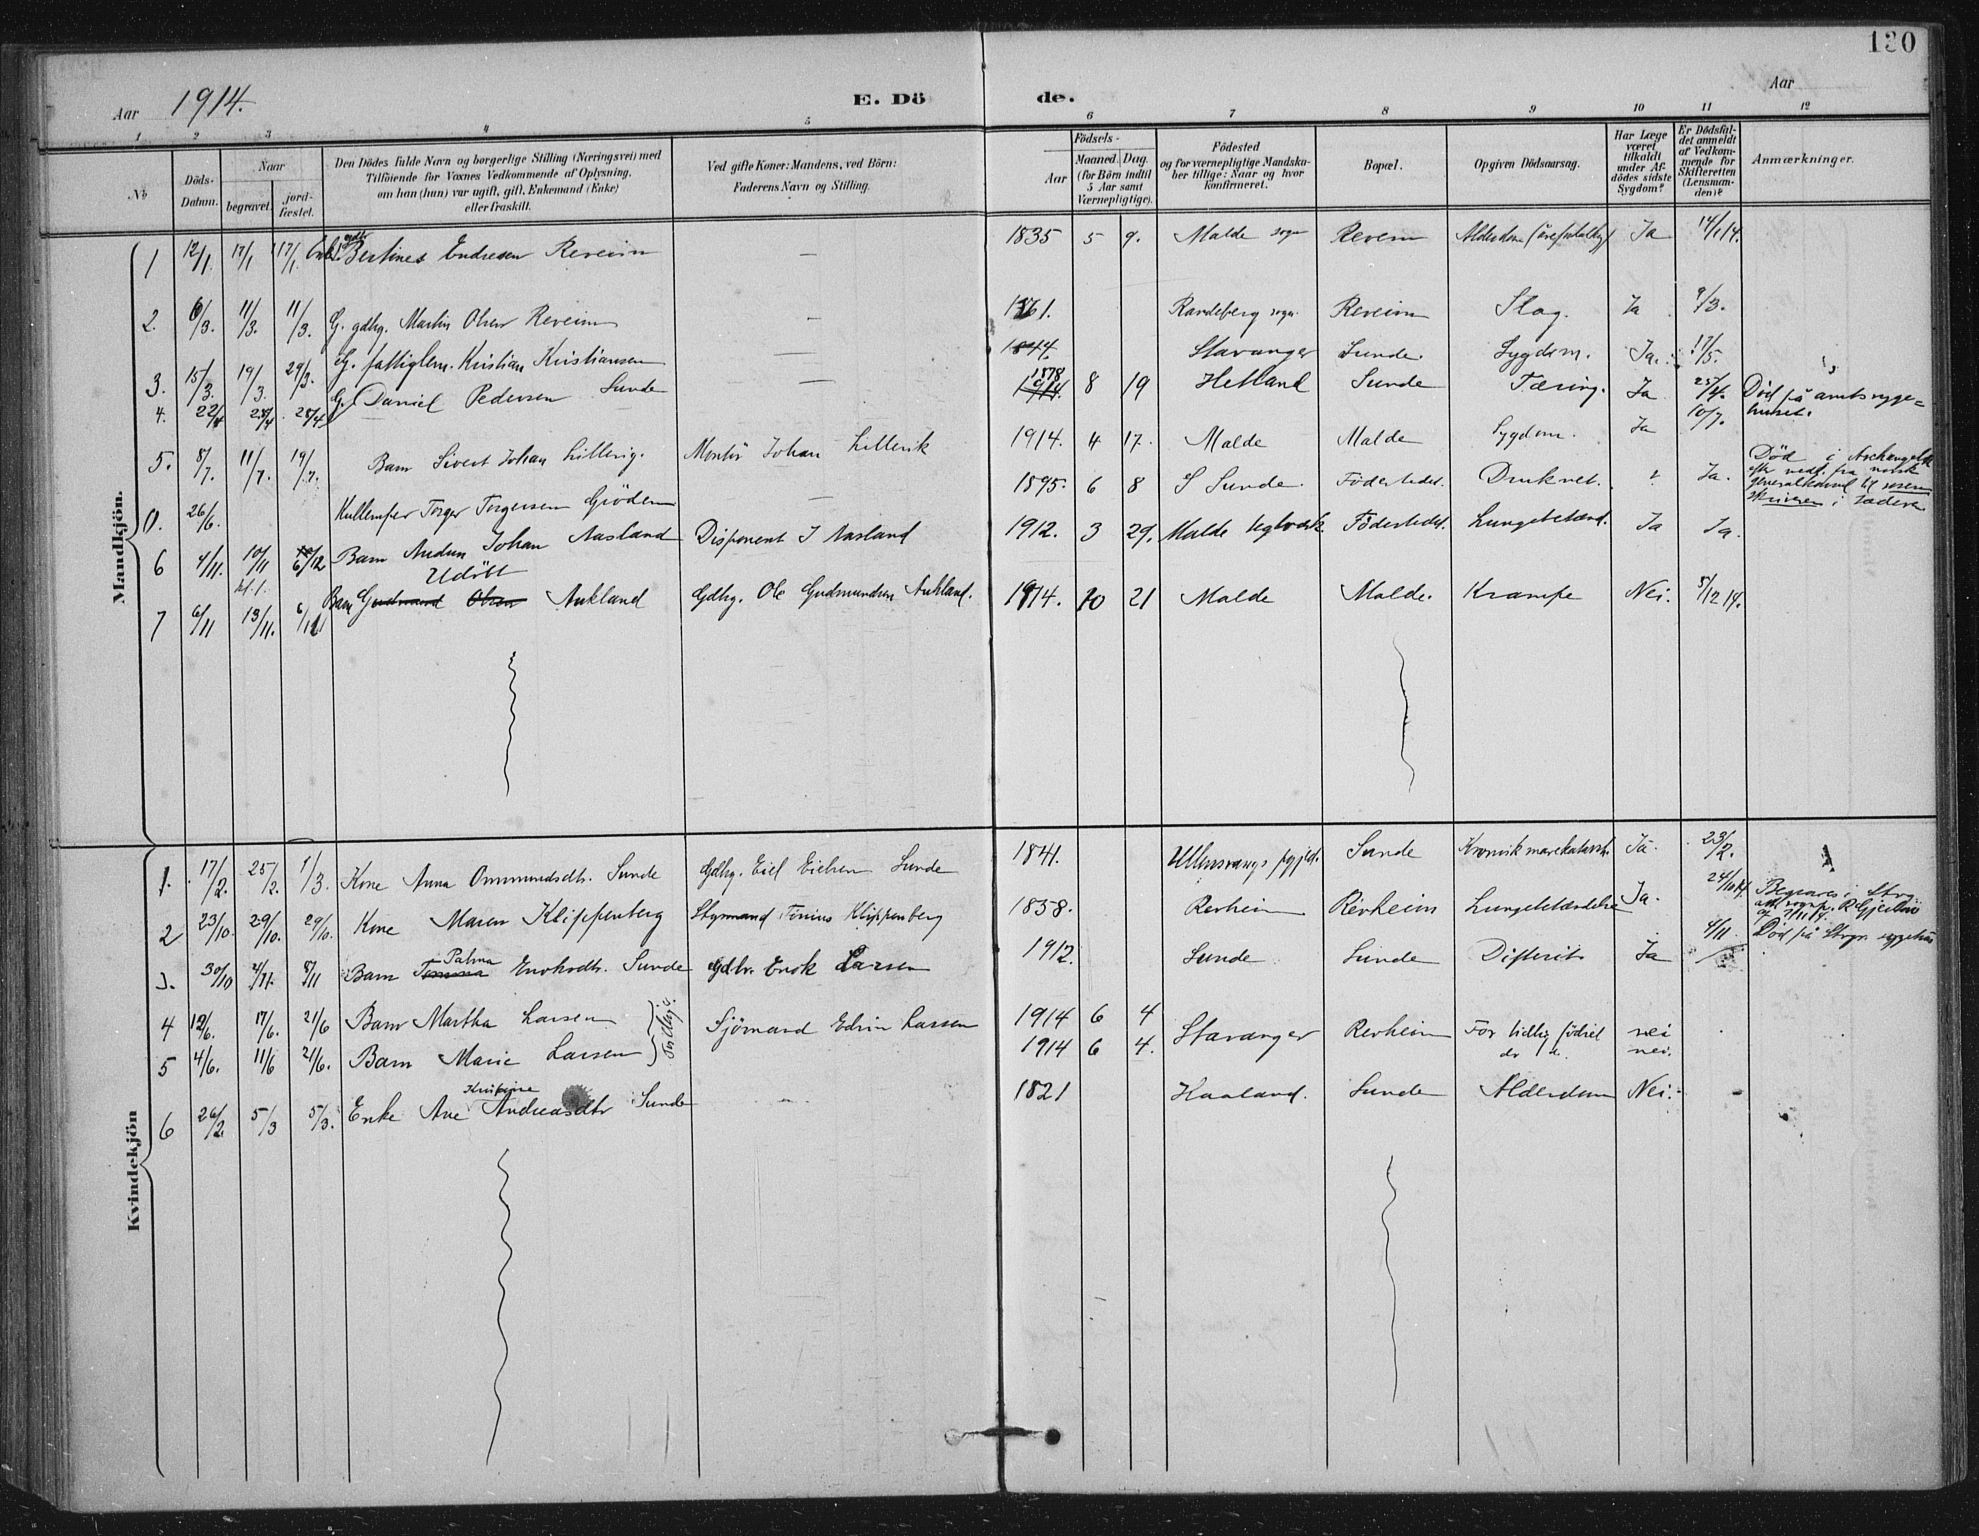 130
Aar 1914.
E. Döde.
Aar
1 2 3 4 5 6 7 8 9 10 11 12
No
Döds-Datum.
Naar
begravet.
jord-fæstet.
Den Dödes fulde Navn og borgerlige Stilling (Næringsvei) med
Tilföiende for Voxnes Vedkommende af Oplysning,
om han (hun) var ugift, gift, Enkemand (Enke)
eller fraskilt.
Ved gifte Koner: Mandens, ved Börn:
Faderens Navn og Stilling.
Födsels-
Aar
Maaned. Dag.
(for Börn indtil
5 Aar samt
Værnepligtige).
Födested
og for værnepligtige Mandska-
ber tillige: Naar og hvor
konfirmeret.
Bopæl.
Opgiven Dödsaarsag.
Har Læge
været
tilkaldt
under Af-
dödes sidste
Sygdom?
Er Dödsfal-
det anmeldt
af Vedkom-
mende for
Skifteretten
(Lensman-
den)?
Anmærkninger.
Mandkjön.
1 12/1. 17/1 17/1. gdbr. Bertines Endresen Reveim — 1835 5 9. Malde sogn Reveim Alderdom Ja 14/1 14.
2. 6/3. 11/3. 11/3. G. gdbg. Martin Olsen Reveim — 1861. Randeberg sogn. Reveim Slag. Ja 9/3.
3. 15/3. 19/3. 29/3. G. fattiglem. Kristian Kristiansen — 1844. Stavanger Sunde. Sygdom. Ja. 17/5.
4. 22/4 28/4 28/4 G. Daniel Pedersen Sunde — 1878 1914 8 19 Hetland Sunde Tæring. Ja 25/4. Död på amtssyge=
huset.
5. 8/7. 11/7. 19/7. Barn Sivert Johan Lillevig. Montör Johan Lillevik 1914. 4 17. Malde Malde Sygdom. Ja 10/7.
0. 26/6. Kullemper Torger Torgersen Gröden — 1895. 6 8 S Sunde. Födestedet. Druknet. ? Ja. Död i Archangelsk
efter medd. fra norsk
generalkonsul til soren
skriveren i Jæderen
6 4/11. 10/11 6/12 Barn Audun Johan Aasland Disponent J Aasland 1912. 3 29. Malde teglverk Födestedet. Lungebetænd. Ja Ja.
7 6/11 13/11. 6/12 Udöbt Barn Gudmund Olsen Aukland Gdbg. Ole Gudmundsen Aukland. 1914. 10 21 Malde Malde. Krampe Nei. 5/12 14.
Kvindekjön
1. 17/2. 25/2. 1/3. Kone Anna Ommundsdtr. Sunde Gdbg. Eiel Eielsen Sunde 1841. Ullensvangs Sunde Kronisk mavekatarrh. Ja. 23/2.
2 23/10. 29/10. 29/10. Kone Maren Klippenberg Styrmand Tönnes Klippenberg 1838. Revheim Revheim Lungebetændelse Ja. 24/10 14. Begraves i Stvgr
3. 30/10 4/11. 8/11 Barn Palma Enoksdtr. Sunde Gdbr. Enok Larsen 1912. Sunde Sunde Difterit Ja 4/11 Död på Stvgr. sygehus
4 12/6. 17/6. 21/6 Barn Martha Larsen Tvillinger. Sjömand Edvin Larsen 1914 6 4 Stavanger Revheim For tidlig födsel nei
5 4/6. 11/6 21/6. Barn Marie Larsen 1914 6 4. do nei.
6 26/2. 5/3 5/3. Enke Ane Kristine Andreasdtr Sunde 1821 Haaland. Sunde Alderdom Nei.